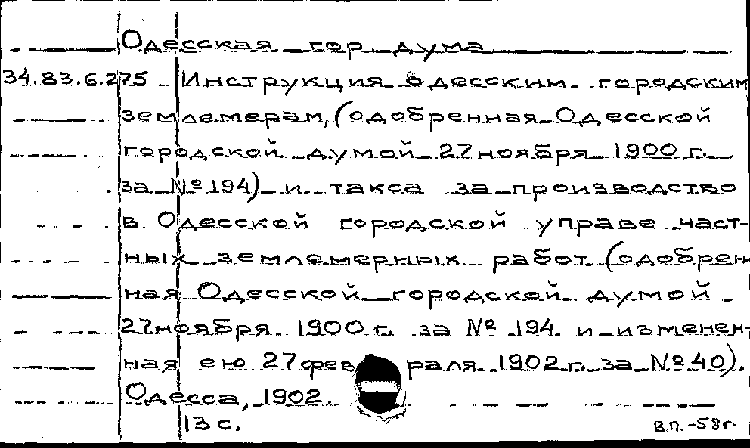 Одесская гор дума
34.83.6.275 Инструкция одесским городским
землемерам, (одобренная Одесской
городской думой 27 ноября 1900 г.
за № 194) и такса за производство
в Одесской городской управе част-
ных землемерных работ (одобрен-
ная Одесской городской думой
27 ноября 1900 г. за № 194 и изменен-
ная ею 27 февраля 1902 г. за № 40).
Одесса, 1902.
13 с.
В.П.-58г.